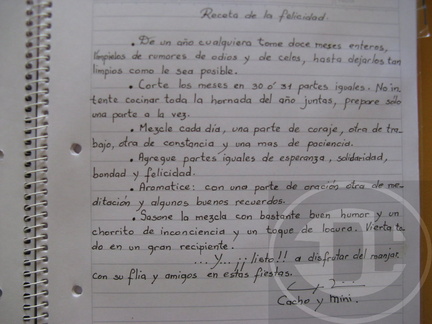 Receta de la felicidad.
. De un año cualquiera tome doce meses enteros,
límpielos de rumores de odios y de celos, hasta dejarlos tan
limpios como le sea posible.
. Corte los meses en 30 ó 31 partes iguales. No in_
tente cocinar toda la hornada del año juntas, prepare sólo
una parte a la vez.
. Mezcle cada día, una parte de coraje, otra de tra_
bajo, otra de constancia y una mas de paciencia.
. Agregue partes iguales de esperanza, solidaridad,
bondad y felicidad.
. Aromatice: con una parte de oración otra de me_
ditación y algunos buenos recuerdos.
. Sasone la mezcla con bastante buen humor y un
chorrito de inconciencia y un toque de locura. Vierta to_
do en un gran recipiente.
... Y... ¡¡ listo!! a disfrutar del manjar
con su flia y amigos en estas fiestas.
Cacho y Mini.